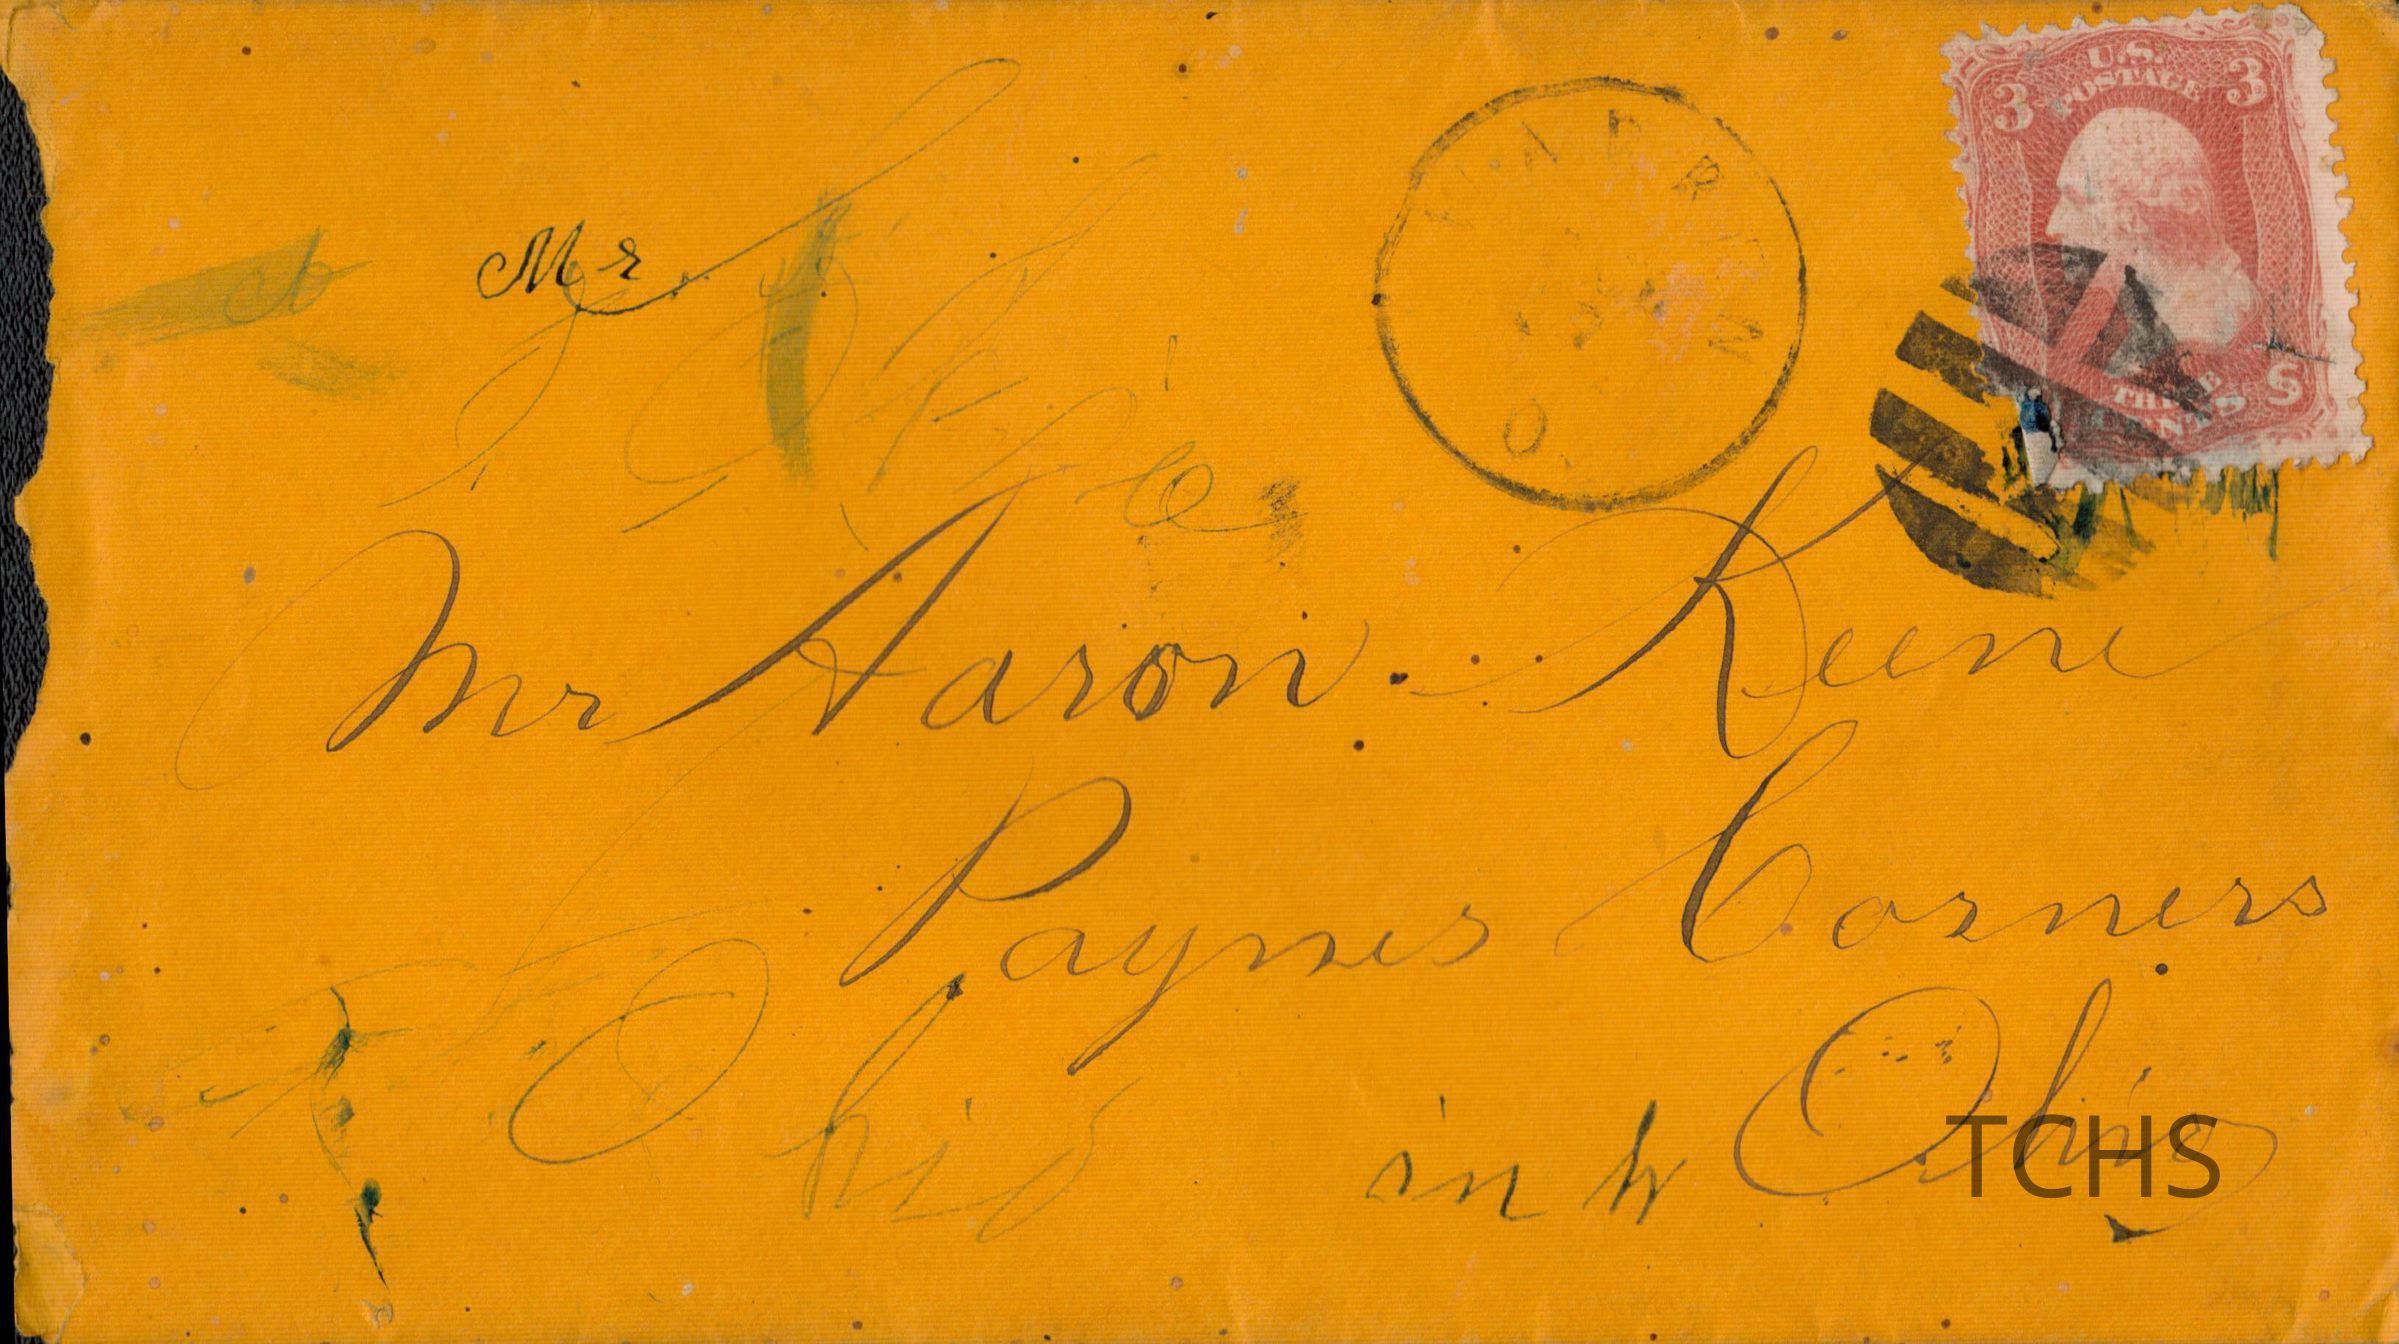 U.S.
POSTAGE
3 3
WARREN
O.
Mr
Mr Aaron Keene
Paynes Corners
Ohio
Ohio
in
TCHS